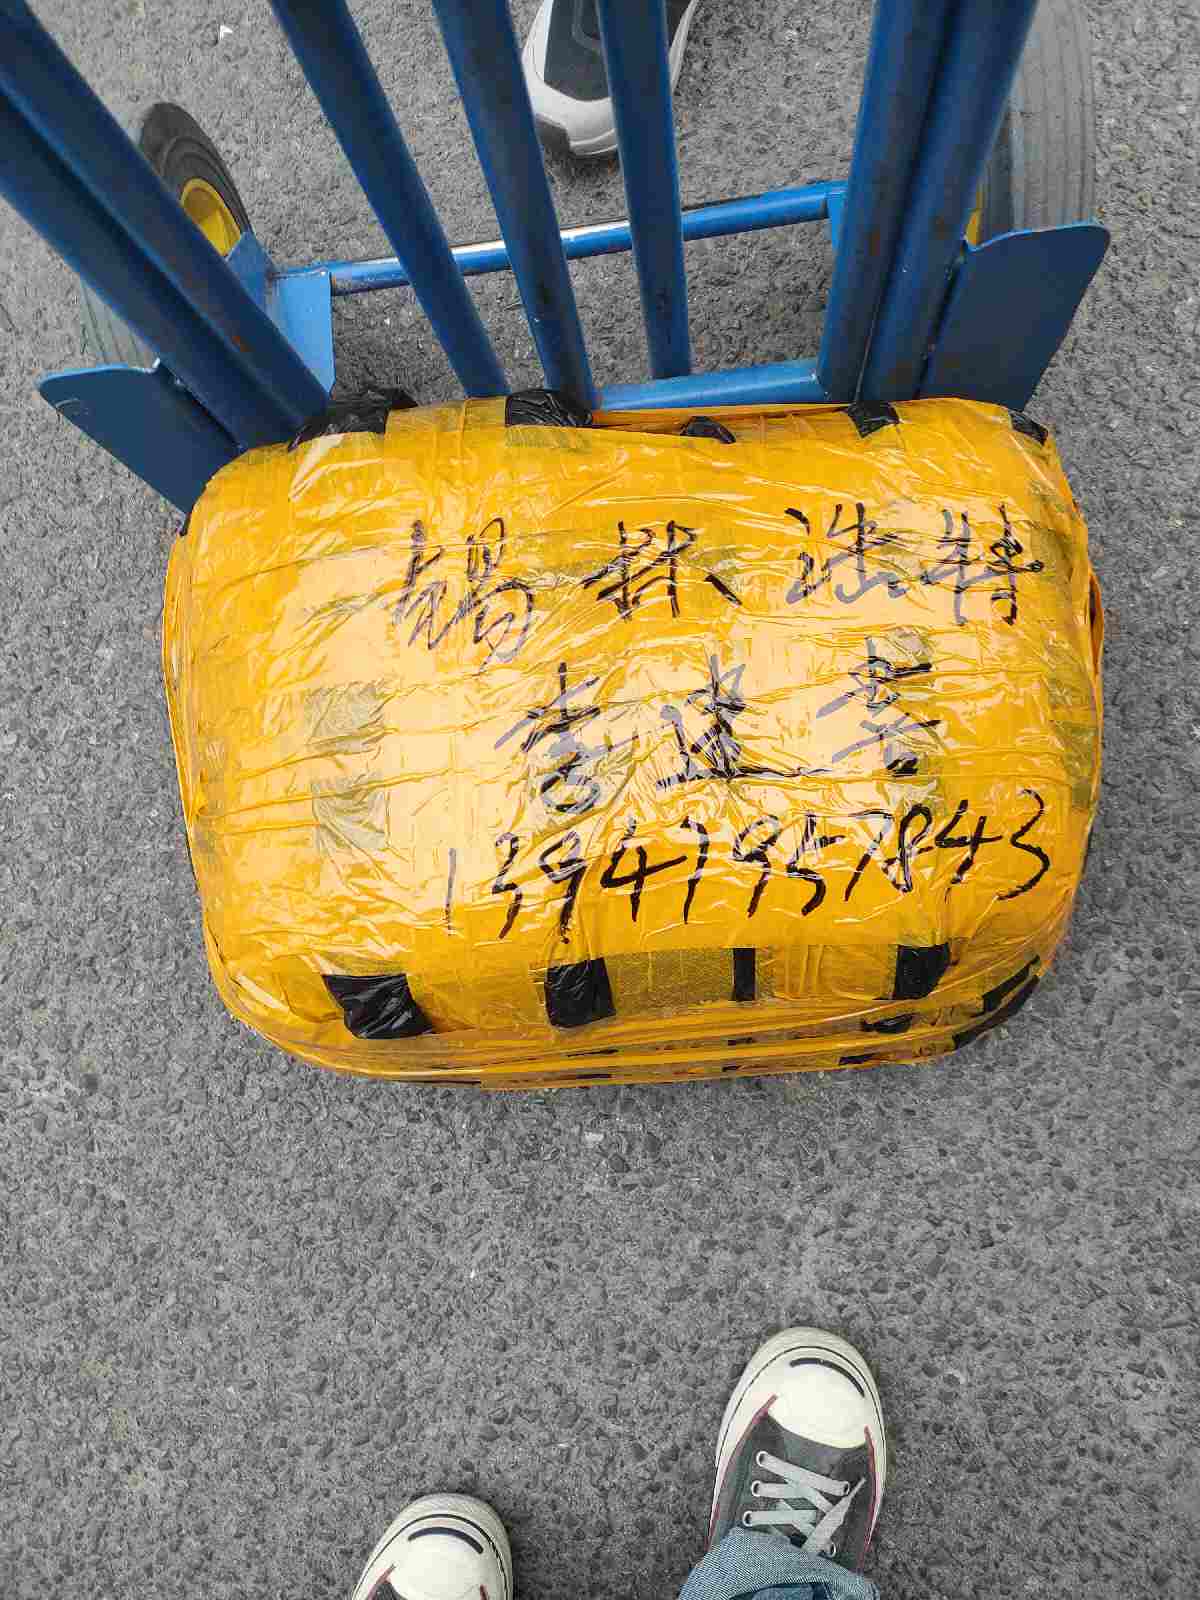 锡林浩特
建
13947957843